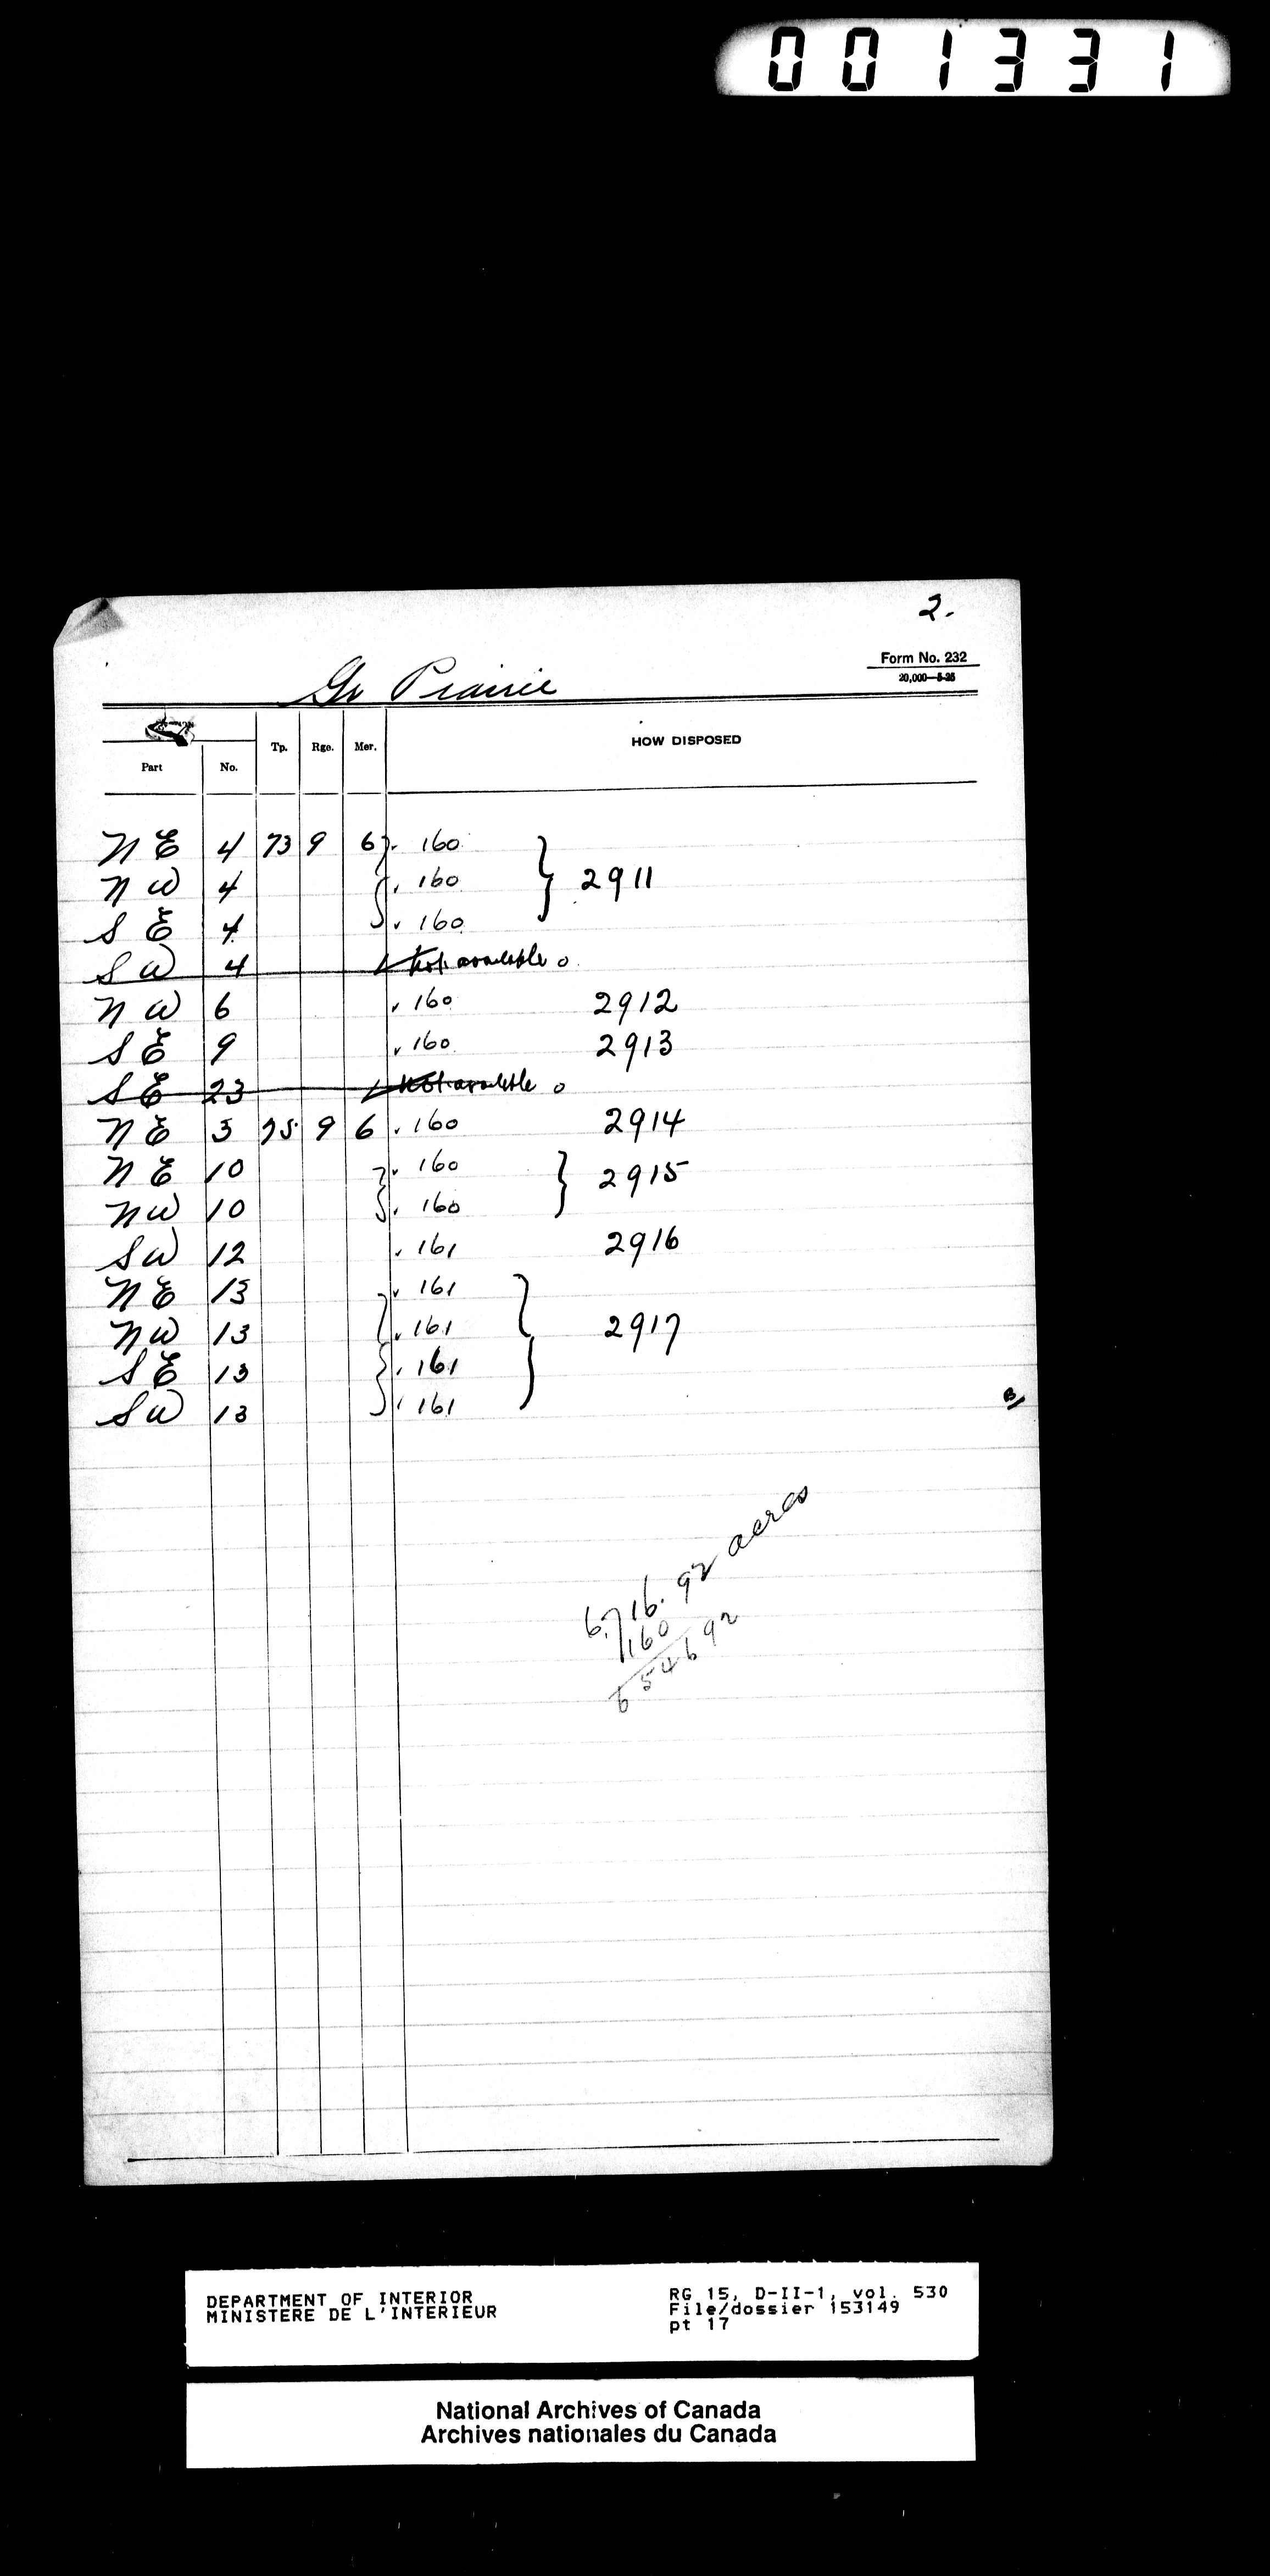 001331
2.
Form No. 232
20,000—5-25
Gr Prairie
Part No. Tp. Rge. Mer. HOW DISPOSED
NE 4 73 9 6 160
NW 4 160 2911
SE 4 160
SW 4 Not available 0
NW 6 160 2912
SE 9 160 2913
SE 23 Not available 0
NE 3 75 9 6 160 2914
NE 10 160 2915
NW 10 160
SW 12 161 2916
NE 13 161
NW 13 161 2917
SE 13 161
SW 13 161
6,716.92 acres
160
6546 92
DEPARTMENT OF INTERIOR
MINISTERE DE L'INTERIEUR
RG 15, D-II-1, vol. 530
File/dossier 153149
pt 17
National Archives of Canada
Archives nationales du Canada